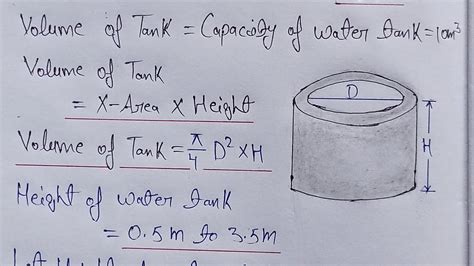 Volume of Tank = Capacity of water tank = 10m³
Volume of Tank
= X-Area x Height
Volume of Tank = π/4 D² x H
Height of water tank
= 0.5m to 3.5m
D
H